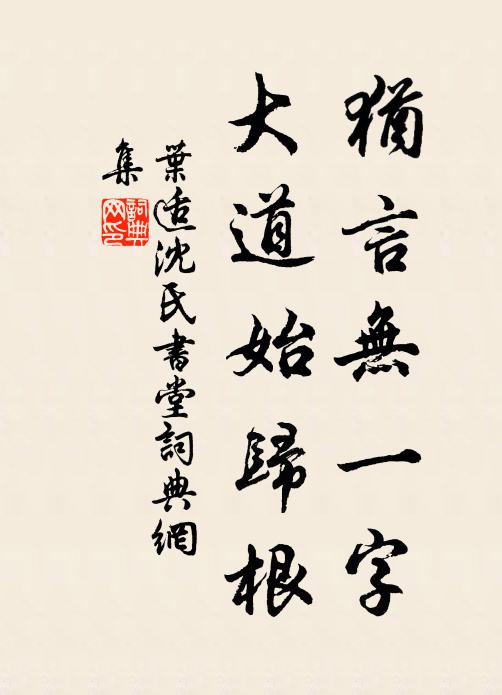 猶言無一字
大道始歸根
葉适沈氏書堂詞典網
集
詞典
网印